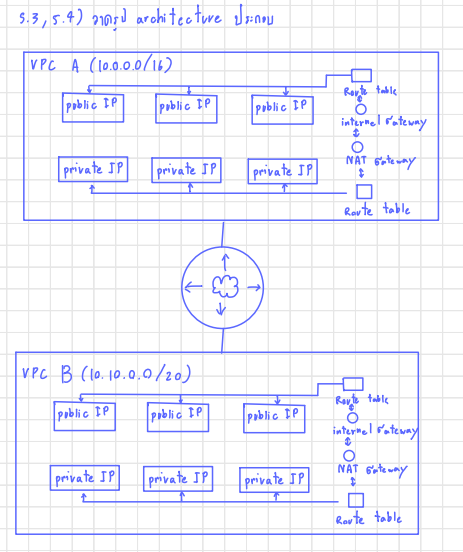 5.3, 5.4) วาดรูป architecture ประกอบ
VPC A (10.0.0.0/16)
Route table
public IP public IP public IP
internel Gateway
NAT Gateway
private IP private IP private IP
Route table
VPC B (10.10.0.0/20)
Route table
public IP public IP public IP
internel Gateway
NAT Gateway
private IP private IP private IP
Route table